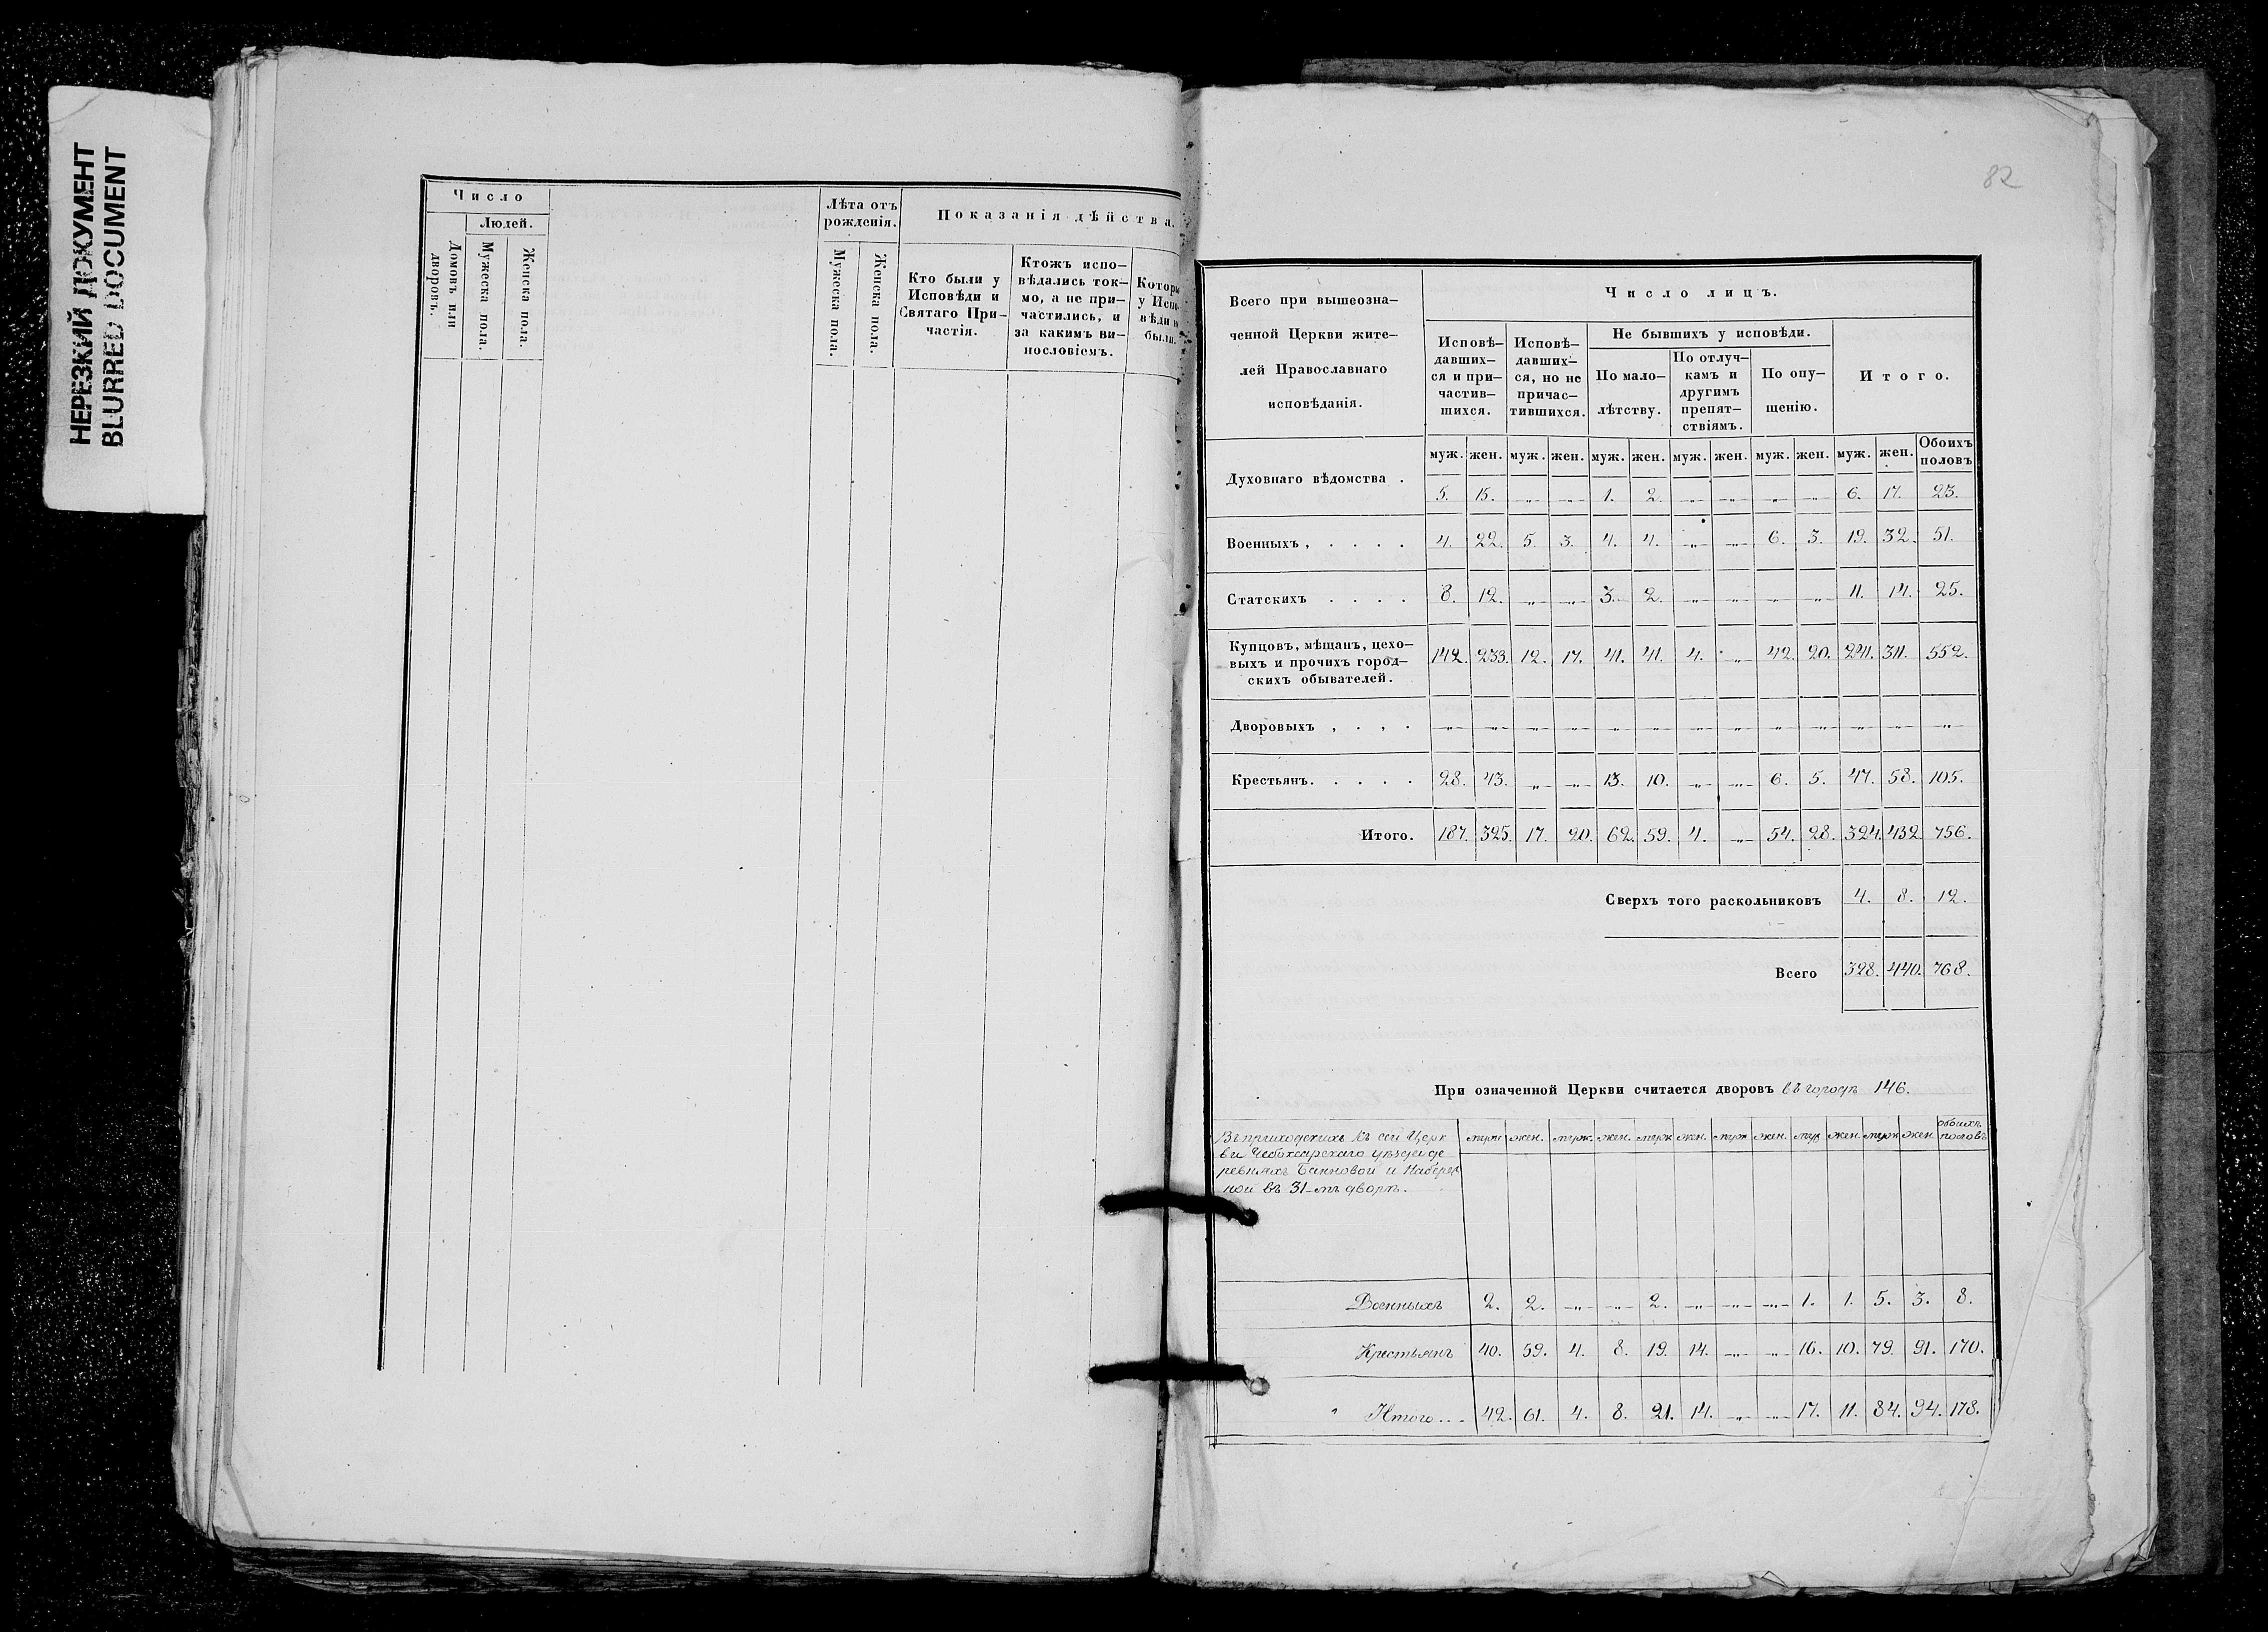 НЕРЕЗКИЙ ДОКУМЕНТ
BLURRED DOCUMENT
Число
Людей.
Домовъ или дворовъ.
Мужеска пола.
Женска пола.
Лѣта отъ
рожденія.
Мужеска пола.
Женска пола.
Показанія дѣйства.
Кто были у
Исповѣди и
Святаго При-
частія.
Ктожъ испо-
вѣдались ток-
мо, а не при-
частились, и
за какимъ ви-
нословіемъ.
Котор
у Испо
вѣди н
были.
82
Всего при вышеозна-
ченной Церкви жите-
лей Православнаго
исповѣданія.
Число лицъ.
Исповѣ-
давших-
ся и при-
частив-
шихся.
Исповѣ-
давших-
ся, но не
причас-
тившихся.
Не бывшихъ у исповѣди.
По мало-
лѣтству.
По отлуч-
камъ и
другимъ
препят-
ствіямъ.
По опу-
щенію.
Итого.
муж. жен. муж. жен. муж. жен. муж. жен. муж. жен. муж. жен. Обоихъ половъ
Духовнаго вѣдомства . 5. 15. -„- -„- 1. 2. -„- -„- -„- -„- 6. 17. 23.
Военныхъ , . . . . 4. 22. 5. 3. 4. 4. -„- -„- 6. 3. 19. 32. 51.
Статскихъ . . . . 8. 12. -„- -„- 3. 2. -„- -„- -„- -„- 11. 14. 25.
Купцовъ, мѣщанъ, цехо-
выхъ и прочихъ город-
скихъ обывателей. 142. 233. 12. 17. 41. 41. 4. -„- 42. 20. 241. 311. 552.
Дворовыхъ , . , . -„- -„- -„- -„- -„- -„- -„- -„- -„- -„- -„- -„- -„-
Крестьянъ. . . . . 28. 43. -„- -„- 13. 10. -„- -„- 6. 5. 47. 58. 105.
Итого. 187. 325. 17. 20. 62. 59. 4. -„- 54. 28. 324. 432. 756.
Сверхъ того раскольниковъ 4. 8. 12.
Всего 328. 440. 768.
При означенной Церкви считается дворовъ въ городѣ 146.
Въ приходскихъ къ сей Церк
ви Чебоксарскаго уѣзда де
ревняхъ Банновой и Набереж
ной въ 31-мъ дворѣ.
муж жен. муж. жен. муж жен. муж жен. муж жен. муж жен обоихъ половъ
Военныхъ 2. 2. -„- -„- 2. -„- -„- -„- 1. 1. 5. 3. 8.
Крестьянъ 40. 59. 4. 8. 19. 14. -„- -„- 16. 10. 79. 91. 170.
Итого... 42. 61. 4. 8. 21. 14. -„- -„- 17. 11. 84. 94. 178.